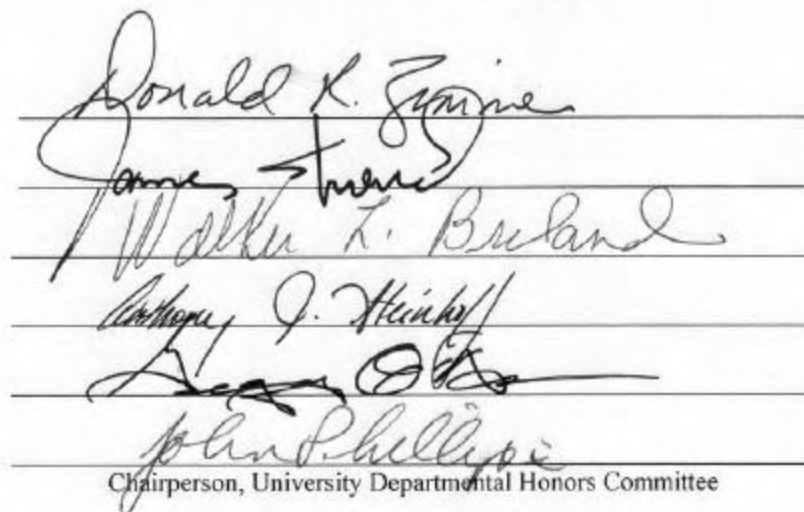 Donald R. Zimmer
James
Walker L. Breland
Anthony J. Steinhoff
Gregory O'
John Phillips
Chairperson, University Departmental Honors Committee